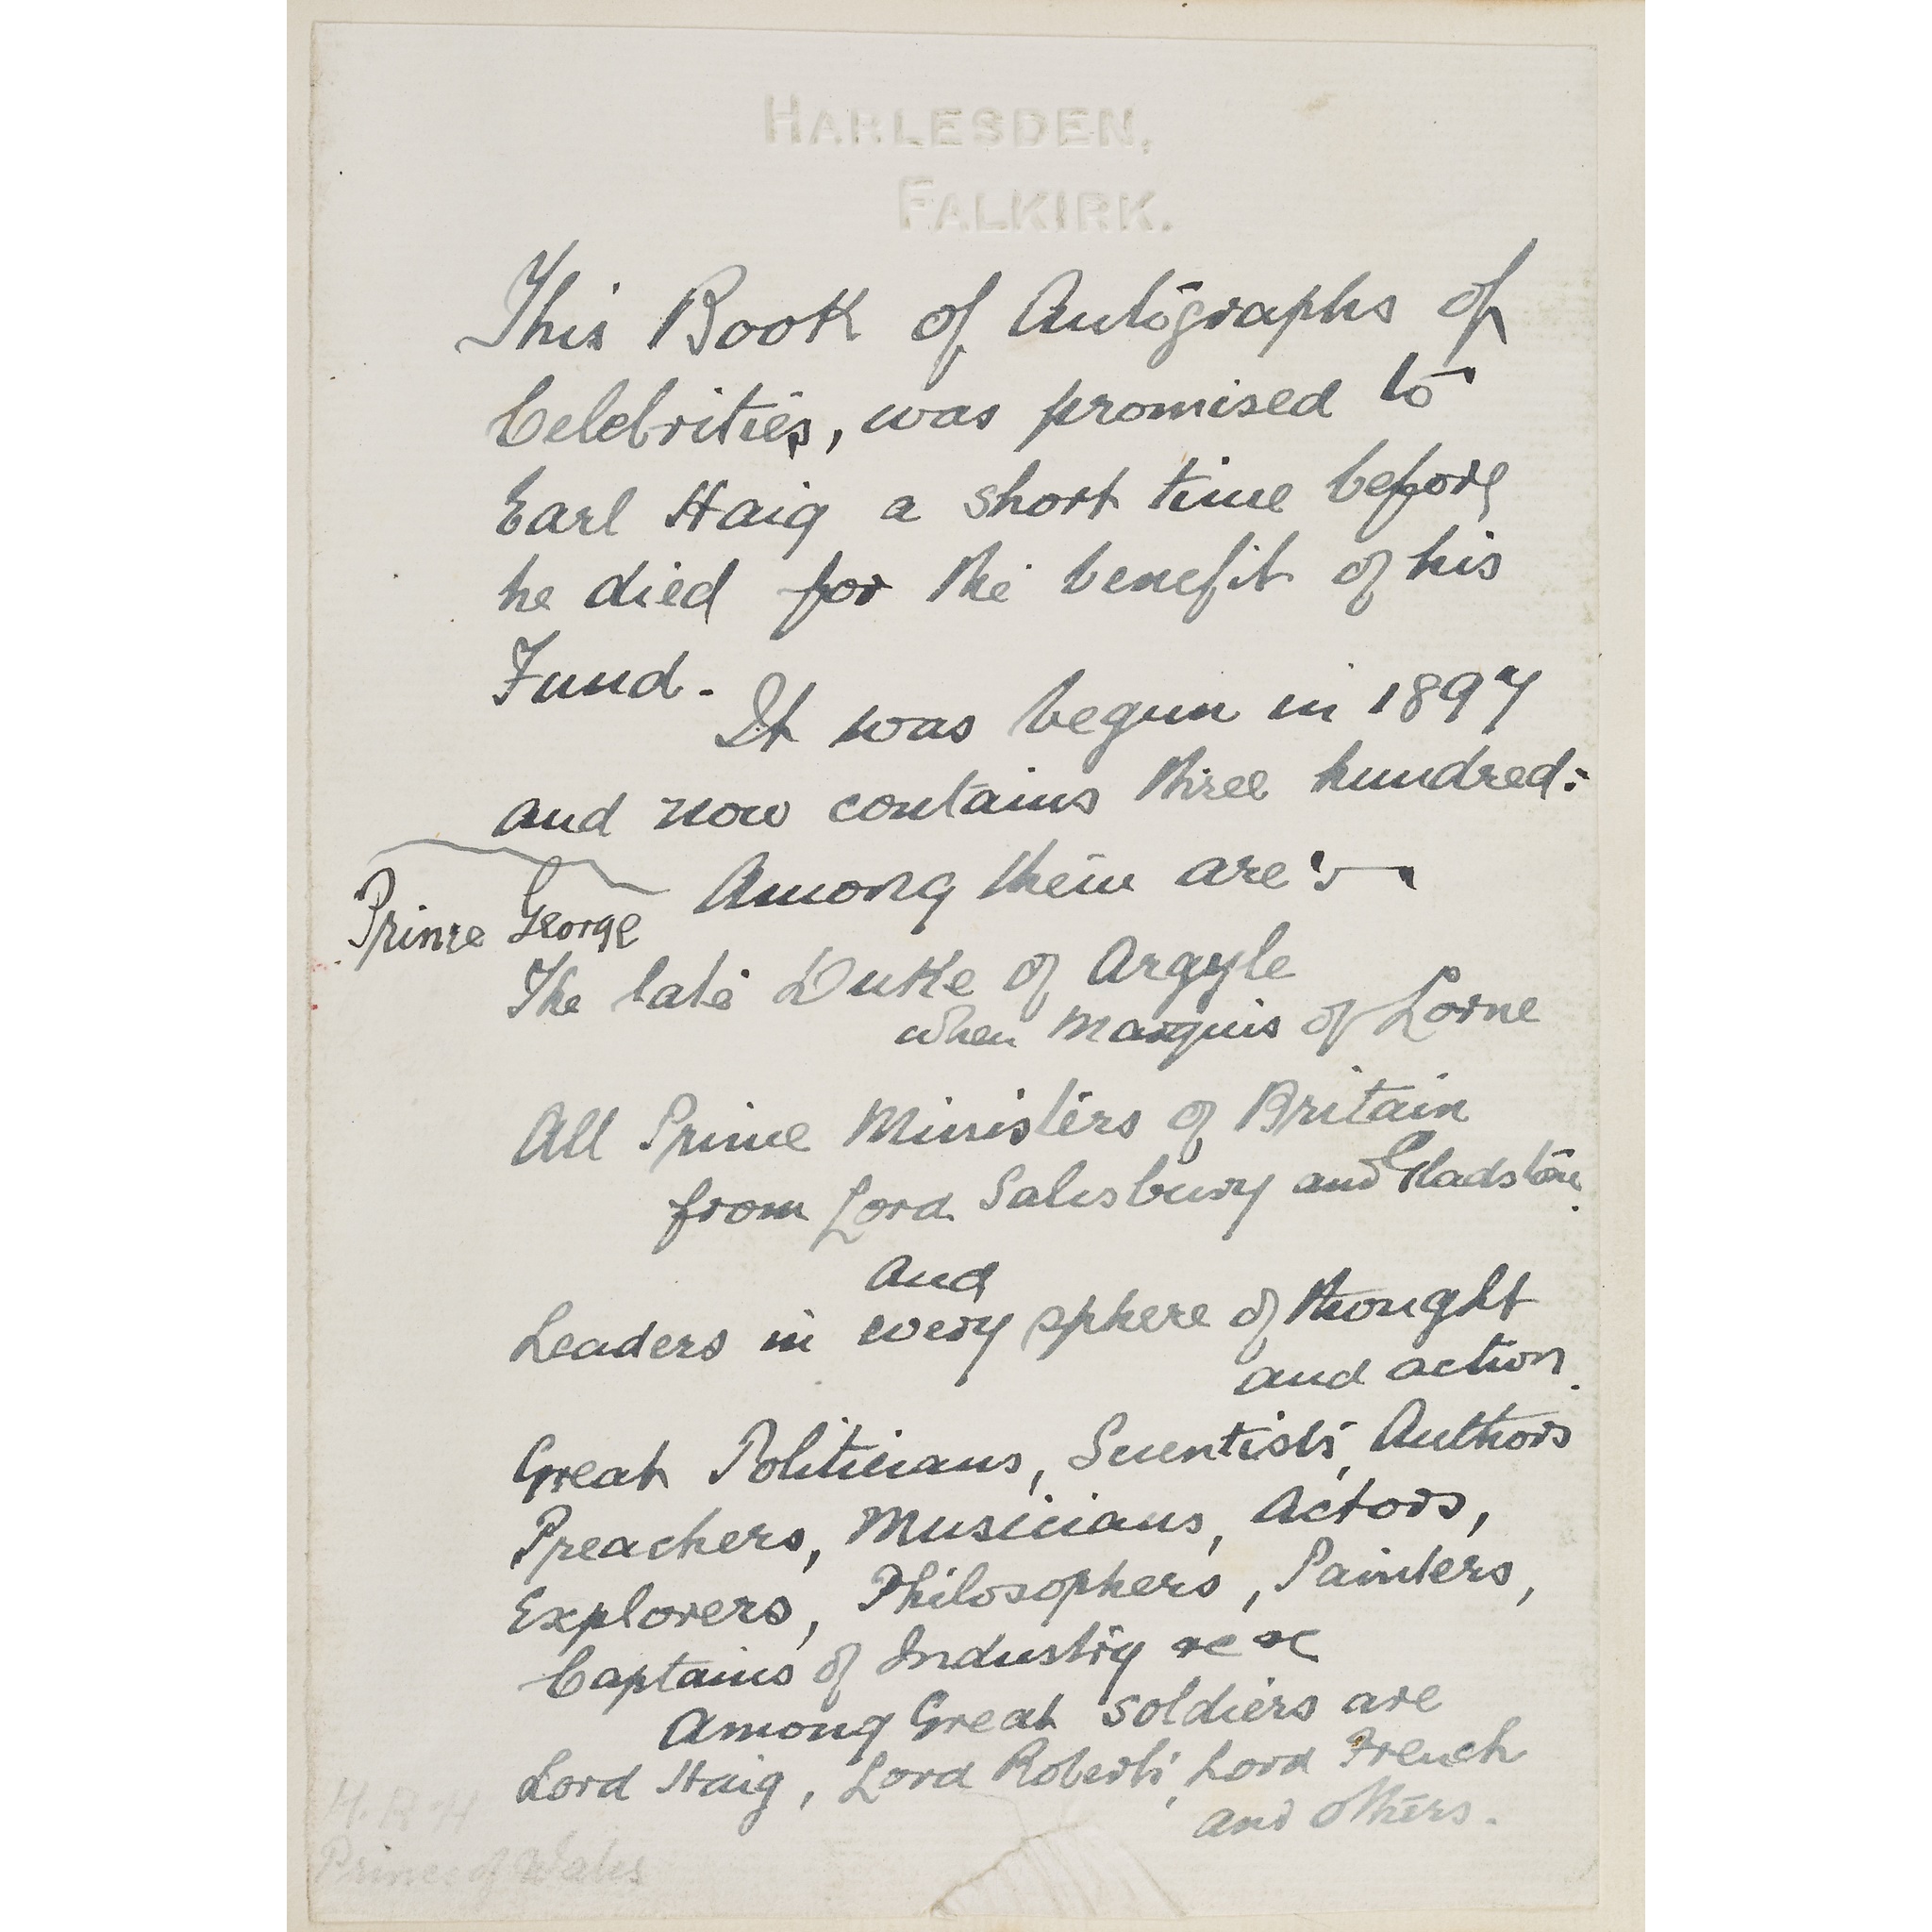 HARLESDEN,
FALKIRK.
This Book of Autographs of
Celebrities, was promised to
Earl Haig a short time before
he died for the benefit of his
Fund.
It was begun in 1897
and now contains three hundred:
Among them are :-
Prince George
The late Duke of Argyle
when Marquis of Lorne
All Prime Ministers of Britain
from Lord Salisbury and Gladstone.
and
Leaders in every sphere of thought
and action.
Great Politicians, Scientists, Authors
Preachers, Musicians, Actors,
Explorers, Philosophers, Painters,
Captains of Industry &c &c
Among Great Soldiers are
Lord Haig, Lord Roberts, Lord French
and others.
H.R.H
Prince of Wales